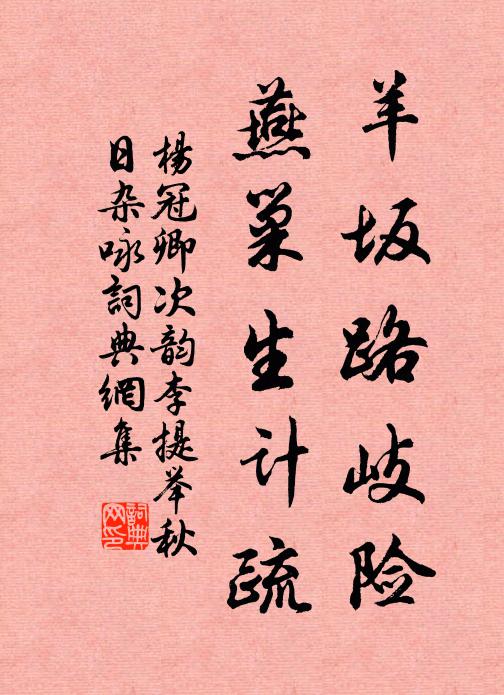 羊坂路歧险
燕巢生计疏
楊冠卿次韵李提举秋
日杂咏詞典網集
詞典网印